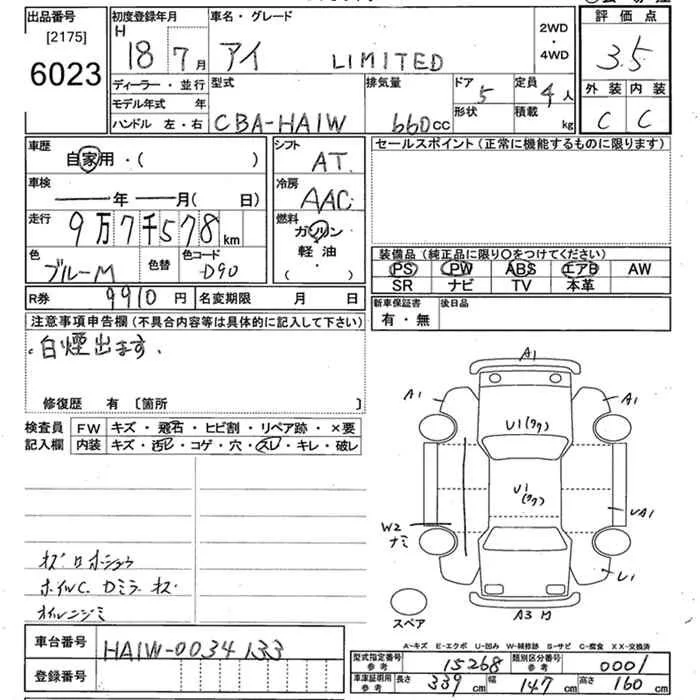 出品番号 初度登録年月 車名・グレード 2WD・4WD 評価点
[2175] H
6023 18年7月 アイ LIMITED 3.5
ディーラー・並行 型式 排気量 ドア 定員 外装 内装
モデル年式 年 5 4人
ハンドル 左・右 CBA-HA1W 660cc 形状 積載 kg C C
車歴 シフト セールスポイント (正常に機能するものに限ります)
自家用・( ) AT
車検 冷房
年 月( 日) AAC
走行 燃料
9万7千578km ガソリン
色 色替 色コード 軽油 装備品 (純正品に限り○をつけてください)
ブルーM D90 ( ・ ) PS PW ABS エアB AW
SR ナビ TV 本革
R券 9910円 名変期限 月 日 新車保証書 後日品
有・無
注意事項申告欄 (不具合内容等は具体的に記入して下さい)
・白煙出ます.
修復歴 有 〔箇所 〕
検査員 FW キズ・飛石・ヒビ割・リペア跡・×要
記入欄 内装 キズ・汚レ・コゲ・穴・スレ・キレ・破レ
A1
A1 A1
U1(ワク)
U1(ワク)
W2 UA1
ナミ
U1
スペア A3
ホイルC. Dミラーキズ
オイルニジミ
A-キズ E-エクボ U-凹み W-補修跡 S-サビ C-腐食 XX-交換済
車台番号 HA1W-0034133
型式指定番号 参考 15268 類別区分番号 参考 0001
登録番号
車庫証明用 参考 長さ 339cm 幅 147cm 高さ 160cm